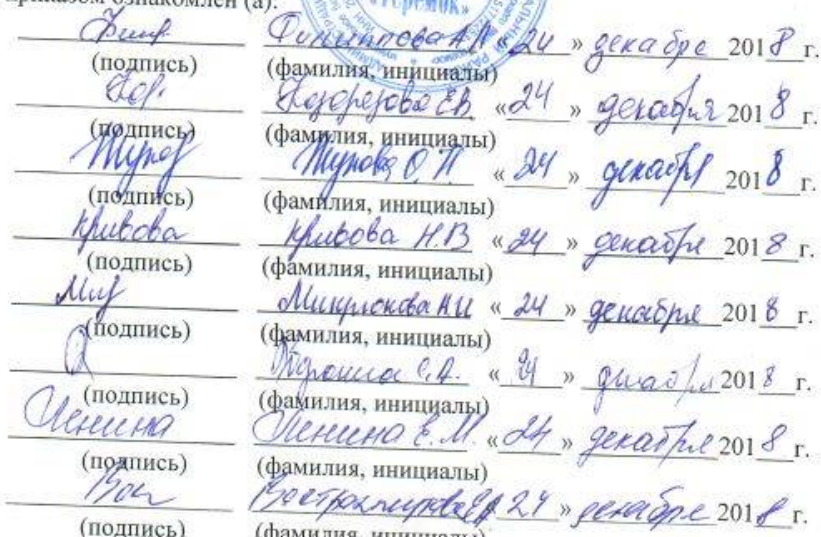 приказом ознакомлен (а):
«Теремок»
Филиппова А.Л. «24» декабря 2018 г.
(подпись) (фамилия, инициалы)
Козорезова Е.В. «24» декабря 2018 г.
(подпись) (фамилия, инициалы)
Жупова О.П. «24» декабря 2018 г.
(подпись) (фамилия, инициалы)
Кривова Кривова Н.В «24» декабря 2018 г.
(подпись) (фамилия, инициалы)
«24» декабря 2018 г.
(подпись) (фамилия, инициалы)
С.А. «24» декабря 2018 г.
(подпись) (фамилия, инициалы)
Пенина Пенина Е.М. «24» декабря 2018 г.
(подпись) (фамилия, инициалы)
24» декабре 2018 г.
(подпись) (фамилия, инициалы)